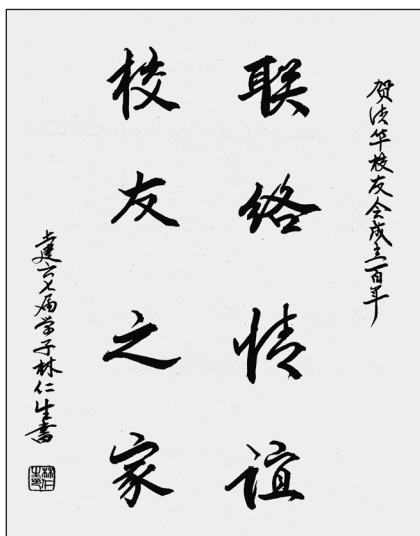 贺清华校友会成立一百年
联络情谊
校友之家
土建六七届学子林仁生书
林仁生印